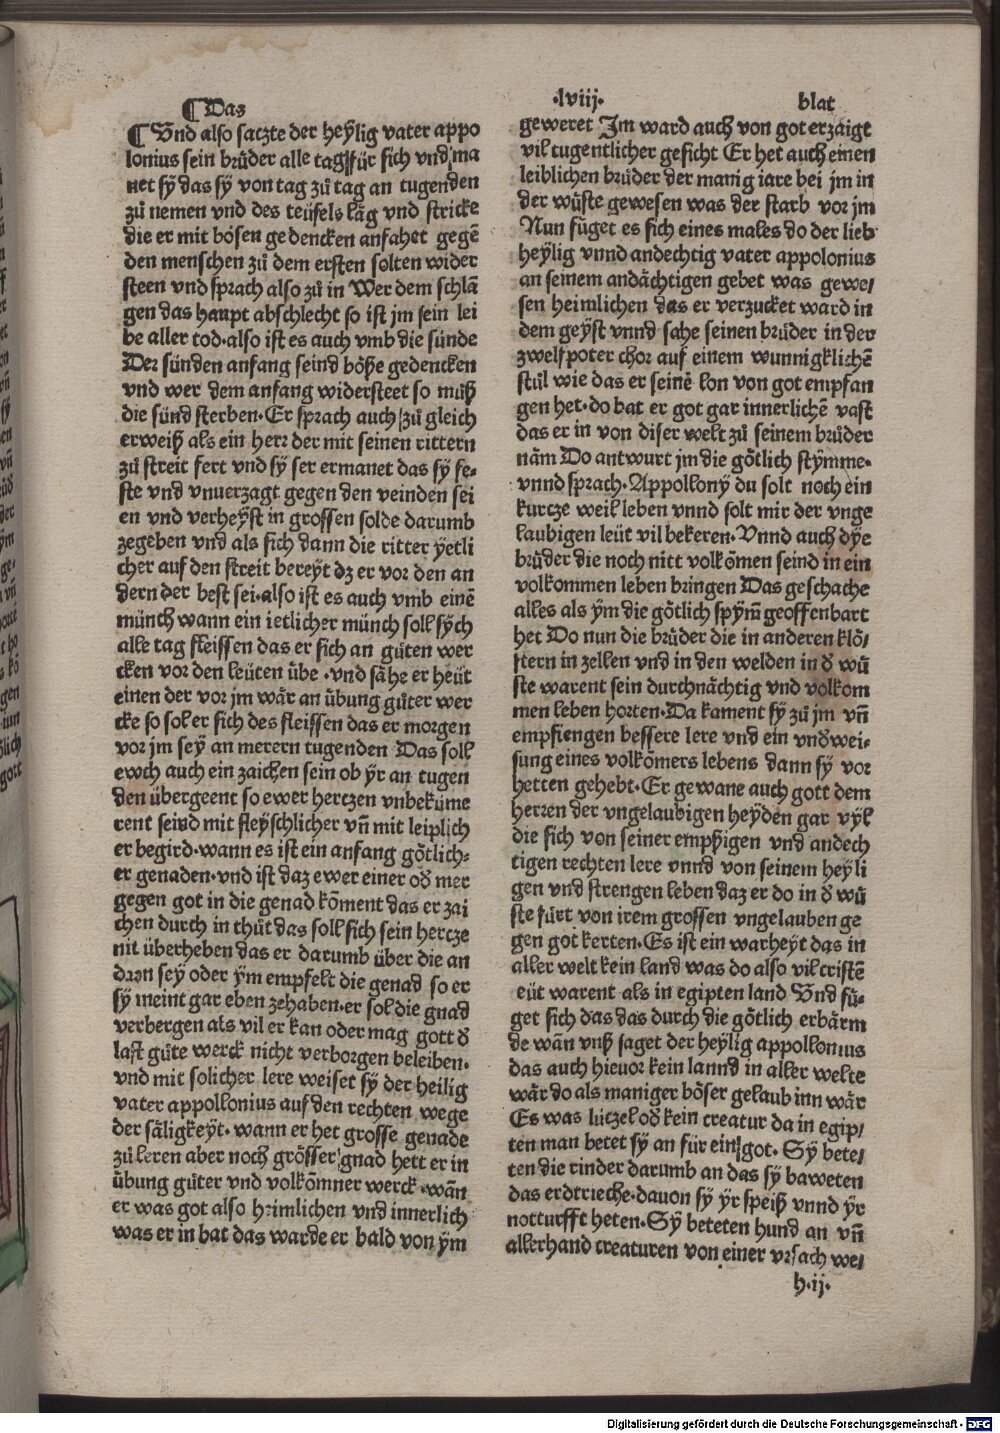 ¶ Das
¶ Vnd also saczte der heylig vater appo
lonius sein brůder alle tag für sich vnd ma
net sÿ das sÿ von tag zů tag an tugenden
zů nemen vnd des teüfels låg vnd stricke
die er mit bösen gedencken anfahet gegē
den menschen zů dem ersten solten wider
steen vnd sprach also zů in Wer dem schlā
gen das haupt abschlecht so ist jm sein lei
be aller tod·also ist es auch vmb die sünde
Der sünden anfang seind böße gedencken
vnd wer dem anfang widersteet so můß
die sünd sterben·Er sprach auch zů gleich
erweiß als ein herr der mit seinen rittern
zů streit fert vnd sÿ ser ermanet das sÿ fe-
ste vnd vnuerzagt gegen den veinden sei
en vnd verheÿst in grossen solde darumb
zegeben vnd als sich dann die ritter yetli
cher auf den streit bereyt dz er vor den an
dern der best sei·also ist es auch vmb einē
münch wann ein ietlicher münch soll sÿch
alle tag fleissen das er sich an gůten wer
cken vor den leüten übe ·vnd såhe er heüt
einen der vor jm wår an übung gůter wer
cke so sol er sich des fleissen das er morgen
vor jm sey an merern tugenden Das soll
ewch auch ein zaichen sein ob ÿr an tugen
den übergeent so ewer hertzen vnbeküme
rent seind mit fleÿschlicher vñ mit leiplich
er begird·wann es ist ein anfang götlich-
er genaden·vnd ist daz ewer einer oď mer
gegen got in die genad kōment das er zai
chen durch in thůt das soll sich sein hertze
nit überheben das er darumb über die an
dern sey oder ÿm empfelt die genad so er
sÿ meint gar eben zehaben·er sol die gnad
verbergen als vil er kan oder mag gott ď
last gůte werck nicht verborgen beleiben·
vnd mit solicher lere weiset sÿ der heilig
vater appollonius auf den rechten wege
der såligkeyt· wann er het grosse genade
zů leren aber noch grösser gnad hett er in
übung gůter vnd volkōmner werck·wān
er was got also heimlichen vnd innerlich
was er in bat das warde er bald von ÿm
·lviij· blat
geweret Im ward auch von got erzaigt
vil tugentlicher gesicht Er het auch einen
leiblichen brůder der manig iare bei jm in
der wůste gewesen was der starb vor jm
Nun fůget es sich eines males do der lieb
heylig vnnd andechtig vater appolonius
an seinem andåchtigen gebet was gewe-
sen heimlichen das er verzucket ward in
dem geÿst vnnd sahe seinen brůder in der
zwelfpoter chor auf einem wunnigklichē
stůl wie das er seinē lon von got empfan
gen het·do bat er got gar innerlichē vast
das er in von diser welt zů seinem brůder
nåm Do antwurt jm die götlich stÿmme·
vnnd sprach·Appollonÿ du solt noch ein
kurtze weil leben vnnd solt mir der vnge
laubigen leüt vil bekeren·Vnnd auch dÿe
brůder die noch nitt volkōmen seind in ein
volkommen leben bringen Das geschache
alles als ÿm die götlich spÿm̄ geoffenbart
het Do nun die brůder die in anderen klö-
stern in zellen vnd in den welden in ď wů
ste warent sein durchnåchtig vnd volkom
men leben horten·Da kament sÿ zů jm vñ
empfiengen bessere lere vnd ein vnďwei-
sung eines volkōmers lebens dann sÿ vor
hetten gehebt·Er gewane auch gott dem
herren der vngelaubigen heyden gar vÿl
die sich von seiner empßigen vnd andech
tigen rechten lere vnnd von seinem heyli
gen vnd strengen leben daz er do in ď wů
ste fůrt von irem grossen vngelauben ge
gen got kerten·Es ist ein warheyt das in
aller welt kein land was do also vil cristē
eüt warent als in egipten land Vnd fů-
get sich das das durch die götlich erbårm
de wān vnß saget der heylig appollonius
das auch hieuor kein lannd in aller welte
wår do als maniger böser gelaub inn wår
Es was lützel oď kein creatur da in egip-
ten man betet sÿ an für ein got· Sÿ bete-
ten die rinder darumb an das sÿ baweten
das erdtrieche·dauon sÿ ÿr speiß vnnd ÿr
notturfft heten·Sÿ beteten hund an vñ
allerhand creaturen von einer vrsach we-
h·ij·
Digitalisierung gefördert durch die Deutsche Forschungsgemeinschaft - DFG